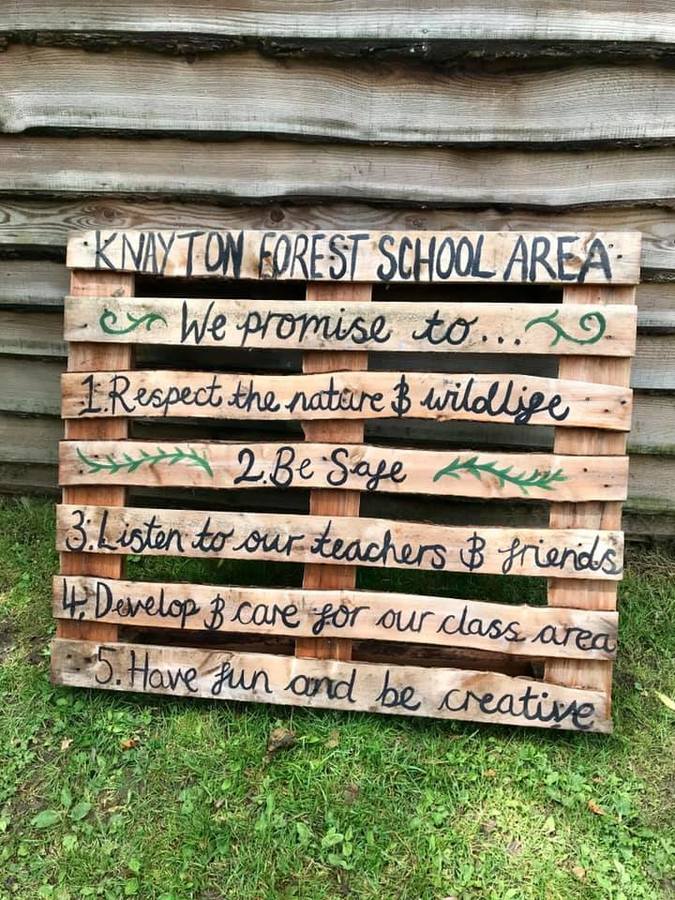 KNAYTON FOREST SCHOOL AREA
We promise to...
1. Respect the nature & wildlife
2. Be Safe
3. Listen to our teachers & friends
4. Develop & care for our class area
5. Have fun and be creative